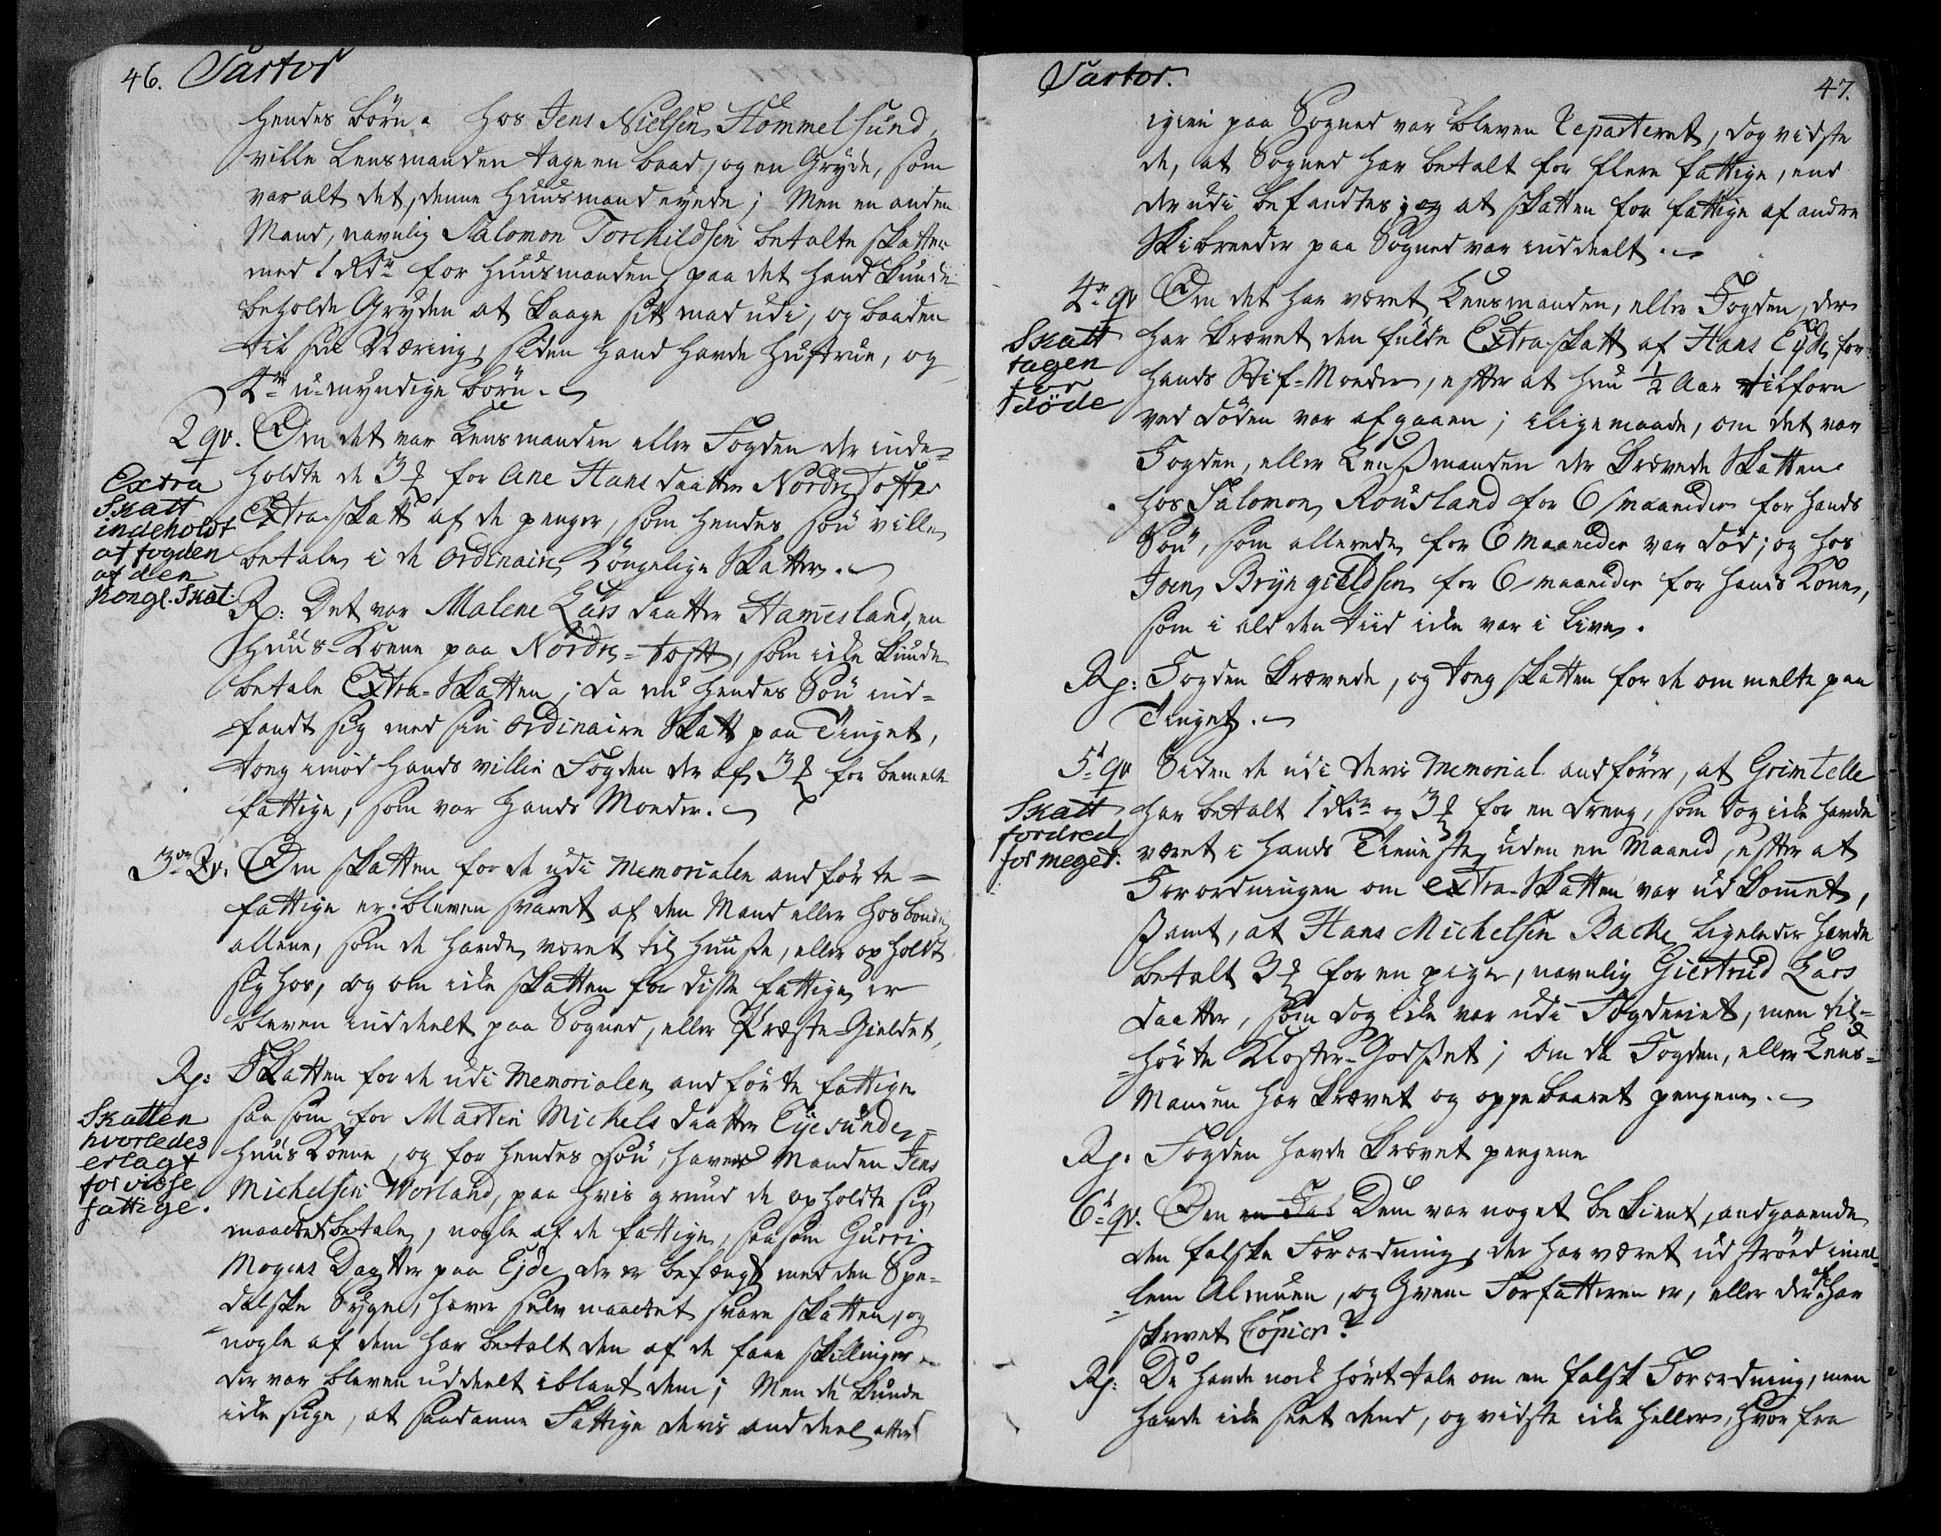 46. Sartor
hendes børn. Hos Jens Nielsen Hommelsund,
ville Lensmanden tage en baad, og en Gryde, som
var alt det, denne Huusmand eyede; Men en anden
Mand, navnlig Salomon Torchildsen betalte skatten
med 1 Rdr for Huusmanden, paa det hand kunde
beholde Gryden at kaage sit mad udi, og baaden
til sin Næring, siden hand havde Hustrue, og
4re u-myndige børn.
2 qv. Om det var Lensmanden eller Fogden der inde-
holdte de 3 for Ane Hans daatter Nordretofte
Extra-skatt af de penger, som hendes søn ville
betale i de ordinaire Kongelige Skatter.
Extra
Skatt
indeholdt
af fogden
af den
kongl. Skat.
Rp: Det var Malene Lars daatter Hamesland, en
Huus-Kone paa Nordre-toft, som icke kunde
betale Extra-Skatten; da nu hendes Søn ind-
fandt sig med sin ordinaire Skatt paa Tinget,
tog imod hands villie Fogden der af 3 for bemelte
fattige, som var hands Moder.
3de Qv. Om skatten for de udi Memorialen andførte
fattige er bleven svaret af den Mand eller Hosbonde
allene, som de havde været til Huuse, eller opholdt
sig hos, og om icke skatten for disse fattige er
bleven inddeelt paa Sognet, eller Præste-Gieldet,
Rp: Skatten for de udi Memorialen andførte fattige
saa som for Martin Michels daatter Eyesunde,
Huus Kone, og for hendes Søn, haver Manden Jens
Michelsen Worland, paa hvis grund de opholdte sig,
maattet betale, nogle af de fattige, saasom Gurri
Mogens Daatter paa Eyde, der er befængt med den Spe-
dalske Syge, haver selv maattet svare skatten, og
nogle af dem har betalt den af de faae skillinger
der var bleven uddeelt iblant dem; Men de kunde
icke sige, at saadanne Fattige deris anddeel atter
Skatten
hvorledes
erlagt
for visse
fattige.
Sartor. 47.
igien paa Sognet var bleven Reparteret, dog vidste
de, at Sognet har betalt for flere fattige, end
der udi befandtes; og at skatten for fattige af andre
Skibreeder paa Sognet var inddeelt.
4re qv Om det har været Lensmanden, eller Fogden, der
har krævet den fulde Extra-skatt af Hans Eyde, for
hands Stif-Moder, efter at hun 1/2 Aar tilforn
ved døden var afgaaen; iligemaade, om det var
Fogden, eller Lensmanden der krævede skatten
hos Salomon Rousland for 6 maaneder for hands
Søn, som allerede for 6 maaneder var død; og hos
Joen Bryngieldsen for 6 maaneder for hands Kone,
som i all den tiid icke var i live.
Skatt
tagen
for
døde
Rp: Fogden krævede, og tog skatten for de ommelte paa
Tinget.
5te qv Siden de udi deris Memorial andfører, at Grimtelle
har betalt 1 Rdr og 3 for en dreng, som dog icke havde
været i hands Tieneste uden en Maaned, efter at
Forordningen om extra-Skatten var udkommet,
samt, at Hans Michelsen Backe ligeleder havde
betalt 3 for en pige, navnlig Giertrud Lars
daatter, som dog icke var udi Fogderiet, men til-
hørte Kloster-Godset; Om da Fogden, eller Lens-
Manden har krævet og oppebaaret pengene.
Skatt
fordred
for meget.
Rp. Fogden havde krævet pengene
6te qv. Om Dem var noget bekient, andgaaende
den falske Forordning, der har været udstrøed imel-
lem Almuen, og hvem Forfatteren er, eller der af har
skrevet Copier?
Rp: De havde nock hørt tale om en falsk Forordning, men
havde icke seet dend, og vidste icke heller, hvor fra